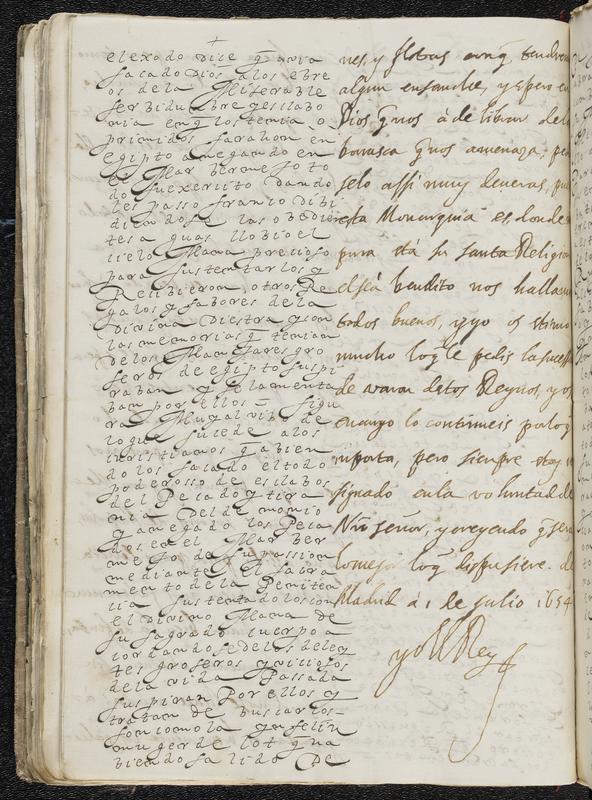 +
el exodo dice q̃ avia
sacado Dios a los ebre
os de la Miserable
serbidumbre y esclabo
nia en q̃ los tenia o
primidos farahon en
egipto anegando en
el Mar bermejo to
do su exercito dando
les passo franco dibi
diendose las o bedien
tes a guas llobio el
cielo Mana precioso
para sustentarlos y
Recibieron otros Re
galos y sabores de la
Divina Diestra y con
las memorias q̃ tenian
de los Manjares gro
seros de egipto suspi
raban y lamenta
ban por ellos = figu
ra Mui al vibo de
lo que sucede a los
christianos q̃ abien
do los sacado el todo
poderosso de esclabos
del Pecado y tira
nia Del demonio
y anegado los Peca
dos en el Mar ber
mejo de su passion
mediante el sacra
mento de la Peniten
cia sustentado los con
el divino Mana de
su sagrado cuerpo a
cordandose de los deley
tes groseros y viciosos
de la vida Passada
suspiran Por ellos y
tratan de buscarlos =
son como la ynfeliz
muger de lot q̃ ha
biendo salido De
nes, y flotas aunq̃ tendran
algun ensanche, y espero en
Dios q̃ nos á de librar de la
borrasca q̃ nos amenaza,
selo assi muy deveras,
esta Monarquia es donde
pura stá su santa Religion
el sea bendito nos hallamos
todos buenos, y yo os stimo
mucho lo q̃ le pedis la
de varon destos Reynos, y os
encargo lo continueis por lo q̃
importa, pero siempre stoy
signado en la voluntad de
Nrõ señor, y creyendo q̃ sera
lo mejor lo q̃ dispusiere. de
Madrid á 1 de julio 1654
yo el Rey